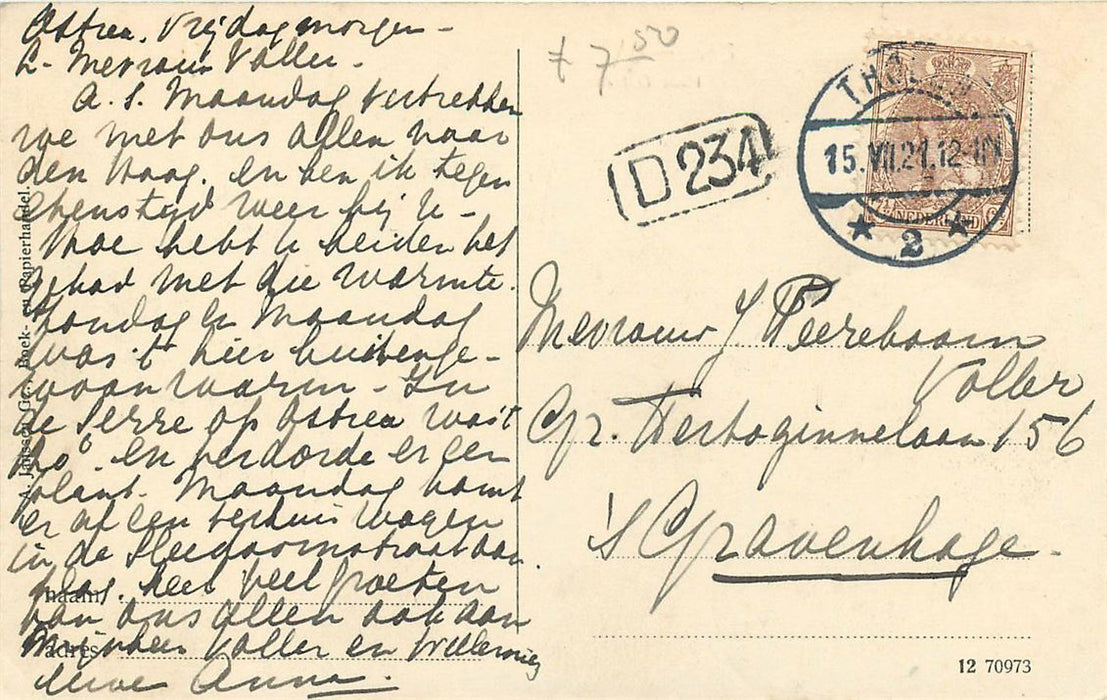 Ostrea. Vrijdagmorgen -
L. Mevrouw Voller.
A.S. Maandag vertrekken
we met ons allen naar
den Haag. en ben ik tegen
etenstijd weer bij U -
Hoe hebt U beiden het
gehad met die warmte.
Zondag en Maandag
was 't hier buitenge-
woon warm - In
de serre op Ostrea was 't
en verdorde er een
plant. Maandag komt
er af een verhuis wagen
in de aan
Zeer veel groeten
van ons allen ook aan
Mijnheer Voller en Willemien
Anna.
A. Jansen Gz., Boek- en Papierhandel
naam
adres
£ 7 50
D 234
THOLEN
15.VII.21.12-1N
2
NEDERLAND
Mevrouw J Peereboom
Voller
Gr. Hertoginnelaan 156
's Gravenhage.
12 70973